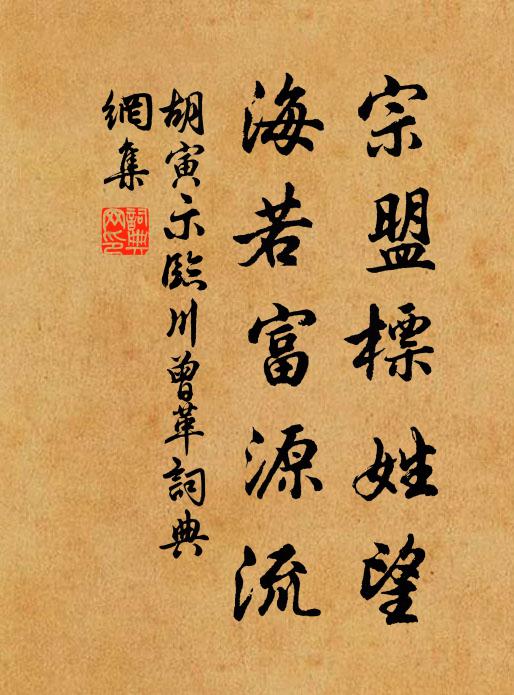 宗盟標姓望
海若富源流
胡寅示臨川曾革詞典
網集
詞典
网印